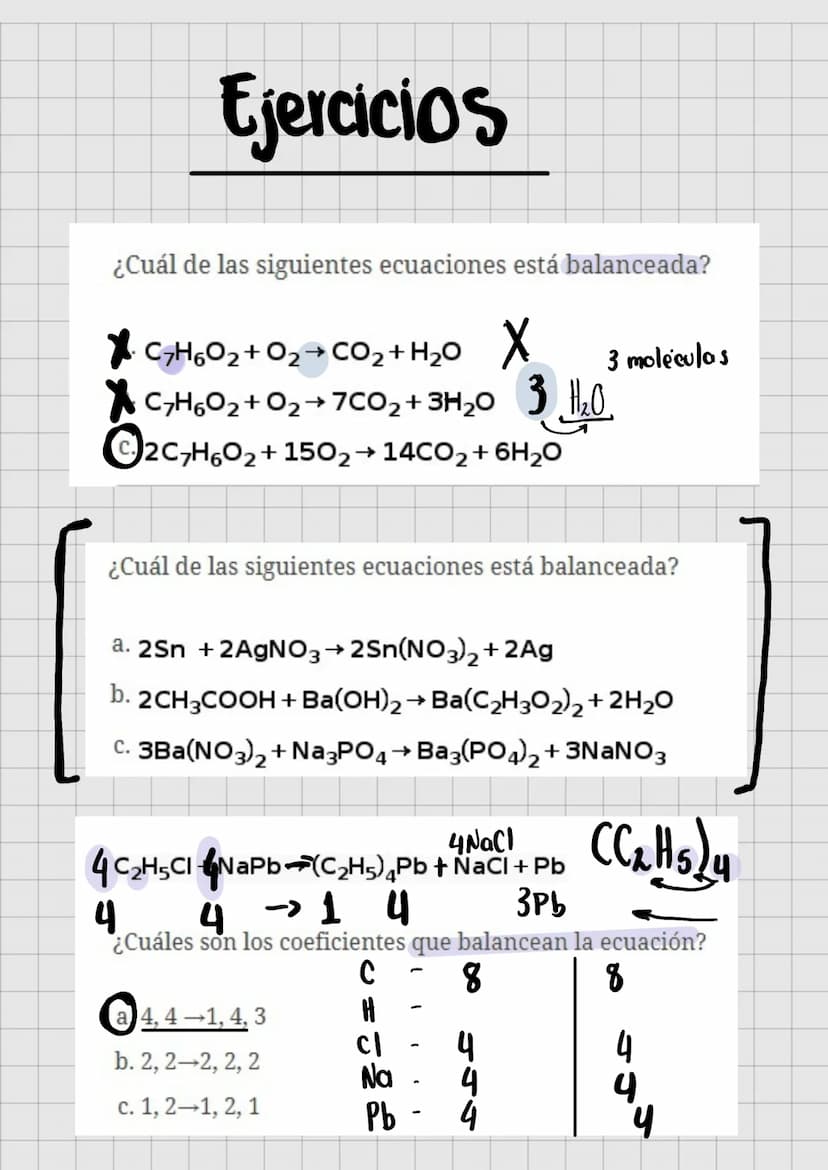 Ejercicios
¿Cuál de las siguientes ecuaciones está balanceada?
X. C₇H₆O₂ + O₂ → CO₂ + H₂O X 3 moléculas
X C₇H₆O₂ + O₂ → 7CO₂ + 3H₂O 3 H₂O
c. 2C₇H₆O₂ + 15O₂ → 14CO₂ + 6H₂O
¿Cuál de las siguientes ecuaciones está balanceada?
a. 2Sn + 2AgNO₃ → 2Sn(NO₃)₂ + 2Ag
b. 2CH₃COOH + Ba(OH)₂ → Ba(C₂H₃O₂)₂ + 2H₂O
c. 3Ba(NO₃)₂ + Na₃PO₄ → Ba₃(PO₄)₂ + 3NaNO₃
4NaCl
4 C₂H₅Cl + 4 NaPb → (C₂H₅)₄Pb + NaCl + Pb (C₂H₅)₄
4 4 → 1 4 3Pb
¿Cuáles son los coeficientes que balancean la ecuación?
C - 8 8
H -
a. 4, 4→1, 4, 3
Cl - 4 4
b. 2, 2→2, 2, 2
Na - 4 4
c. 1, 2→1, 2, 1
Pb - 4 4